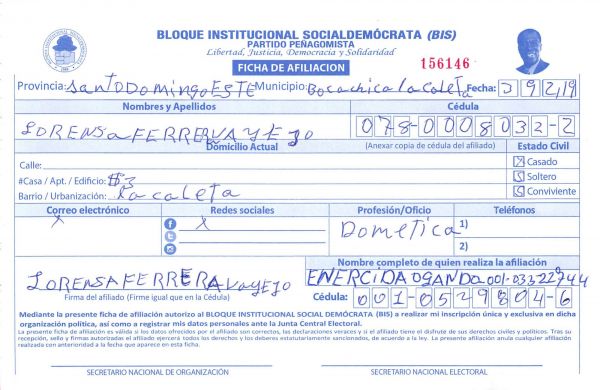 BLOQUE INSTITUCIONAL SOCIALDEMÓCRATA (BIS)
PARTIDO PEÑAGOMISTA
Libertad, Justicia, Democracia y Solidaridad
FICHA DE AFILIACION
156146
Provincia: SantoDomingo ESTE Municipio: Bocachica La Caleta Fecha: 3 9 2 19
Nombres y Apellidos Cédula
LORENSA FERRER 078-0008032-2
Domicilio Actual (Anexar copia de cédula del afiliado) Estado Civil
Calle: Casado
#Casa / Apt. / Edificio: #3 Soltero
Barrio / Urbanización: La caleta Conviviente
Correo electrónico Redes sociales Profesión/Oficio Teléfonos
X X Dometica 1)
2)
Nombre completo de quien realiza la afiliación
LORENSA FERRERA ENERCIDA OGANDO
Firma del afiliado (Firme igual que en la Cédula) Cédula: 001-0529804-6
Mediante la presente ficha de afiliación autorizo al BLOQUE INSTITUCIONAL SOCIAL DEMÓCRATA (BIS) a realizar mi inscripción única y exclusiva en dicha
organización política, así como a registrar mis datos personales ante la Junta Central Electoral.
La presente ficha de afiliación es válida si los datos ofrecidos por el afiliado son correctos, las declaraciones veraces y si el afiliado tiene el disfrute de sus derechos civiles y políticos. Tras su
recepción, sello y firmas autorizadas el afiliado ejercerá todos los derechos y los deberes estatutariamente sancionados, de acuerdo a la ley. La presente afiliación anula cualquier afiliación
realizada con anterioridad a la fecha que aparece en esta ficha.
SECRETARIO NACIONAL DE ORGANIZACIÓN SECRETARIO NACIONAL ELECTORAL